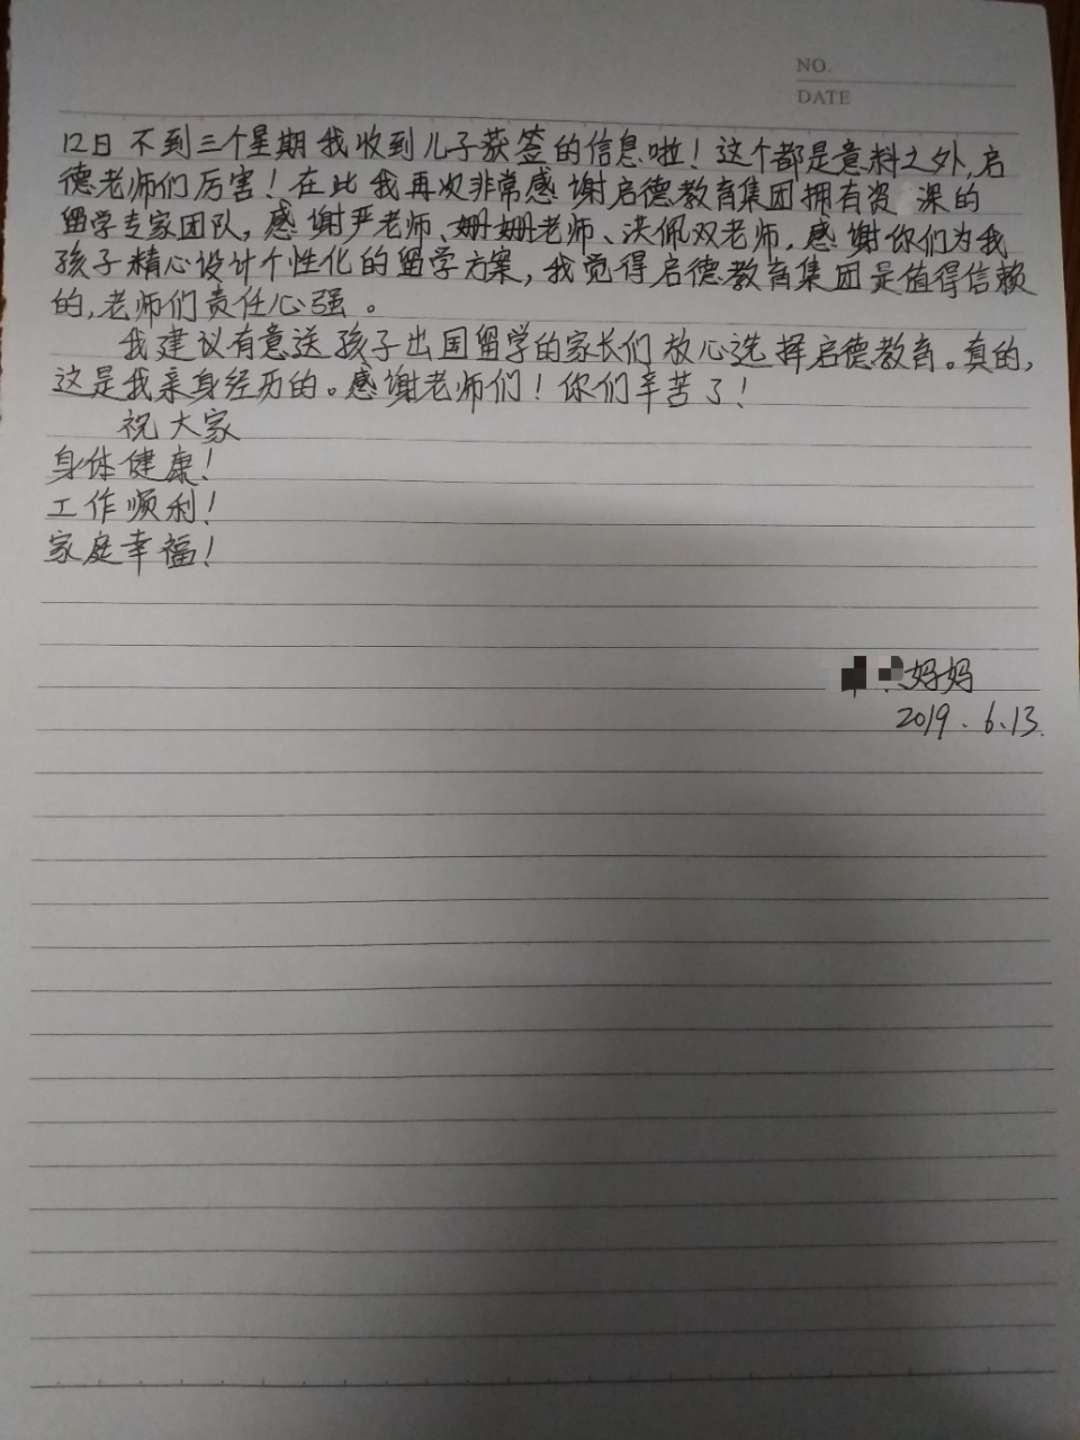 NO.
DATE
12日不到三个星期我收到儿子获签的信息啦！这个都是意料之外，启
德老师们厉害！在此我再次非常感谢启德教育集团拥有资深的
留学专家团队，感谢严老师、姗姗老师、洪佩双老师，感谢你们为我
孩子精心设计个性化的留学方案，我觉得启德教育集团是值得信赖
的，老师们责任心强。
我建议有意送孩子出国留学的家长们放心选择启德教育。真的，
这是我亲身经历的。感谢老师们！你们辛苦了！
祝大家
身体健康！
工作顺利！
家庭幸福！
妈妈
2019.6.13.